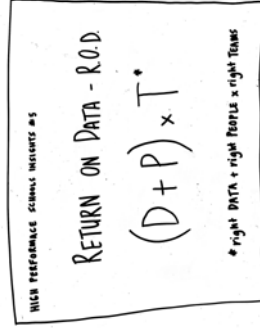 HIGH PERFORMANCE SCHOOLS INSIGHTS #5
RETURN ON DATA - R.O.D.
(D + P) x T*
* right DATA + right PEOPLE x right TEAMS